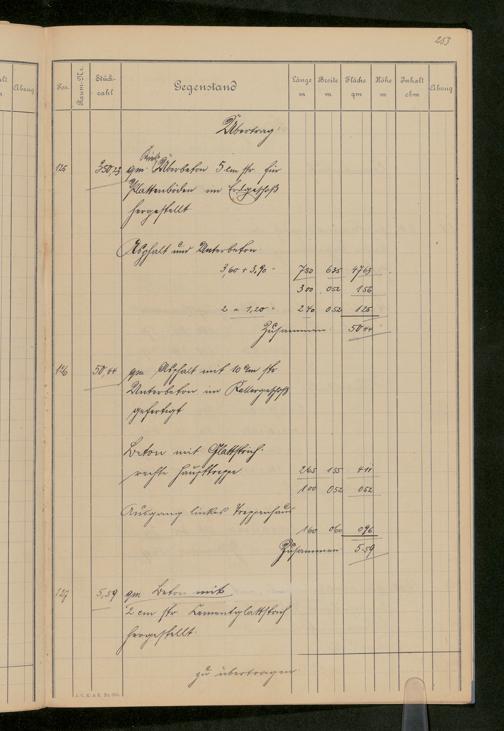 253
Pos. Raum-Nr. Stückzahl Gegenstand Länge m Breite m Fläche qm Höhe m Inhalt cbm Abzug
Übertrag
125 350,23 qm Überbeton 5 cm str. für
Plattenböden im Erdgeschoß
hergestellt
Asphalt und Unterbeton
3,60 + 3,90 = 7 50 6 35 47 63
3 00 0 52 1 56
2 × 1,20 = 2 40 0 52 1 25
Zusammen 50 44
126 50,44 qm Asphalt mit 10 cm str.
Unterbeton im Kellergeschoß
gefertigt
Beton mit Glattstrich.
rechte Haupttreppe 2 65 1 55 4 11
1 00 0 52 0 52
Ausgang linkes Treppenhaus
1 60 0 60 0 96
Zusammen 5 59
127 5,59 qm Beton mit
2 cm str. Zementglattstrich
hergestellt.
zu übertragen